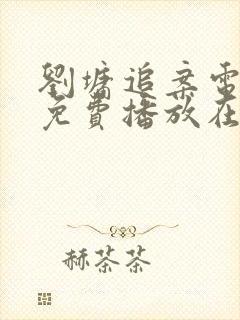 劉墉追案電
免費播放在
赫茶茶